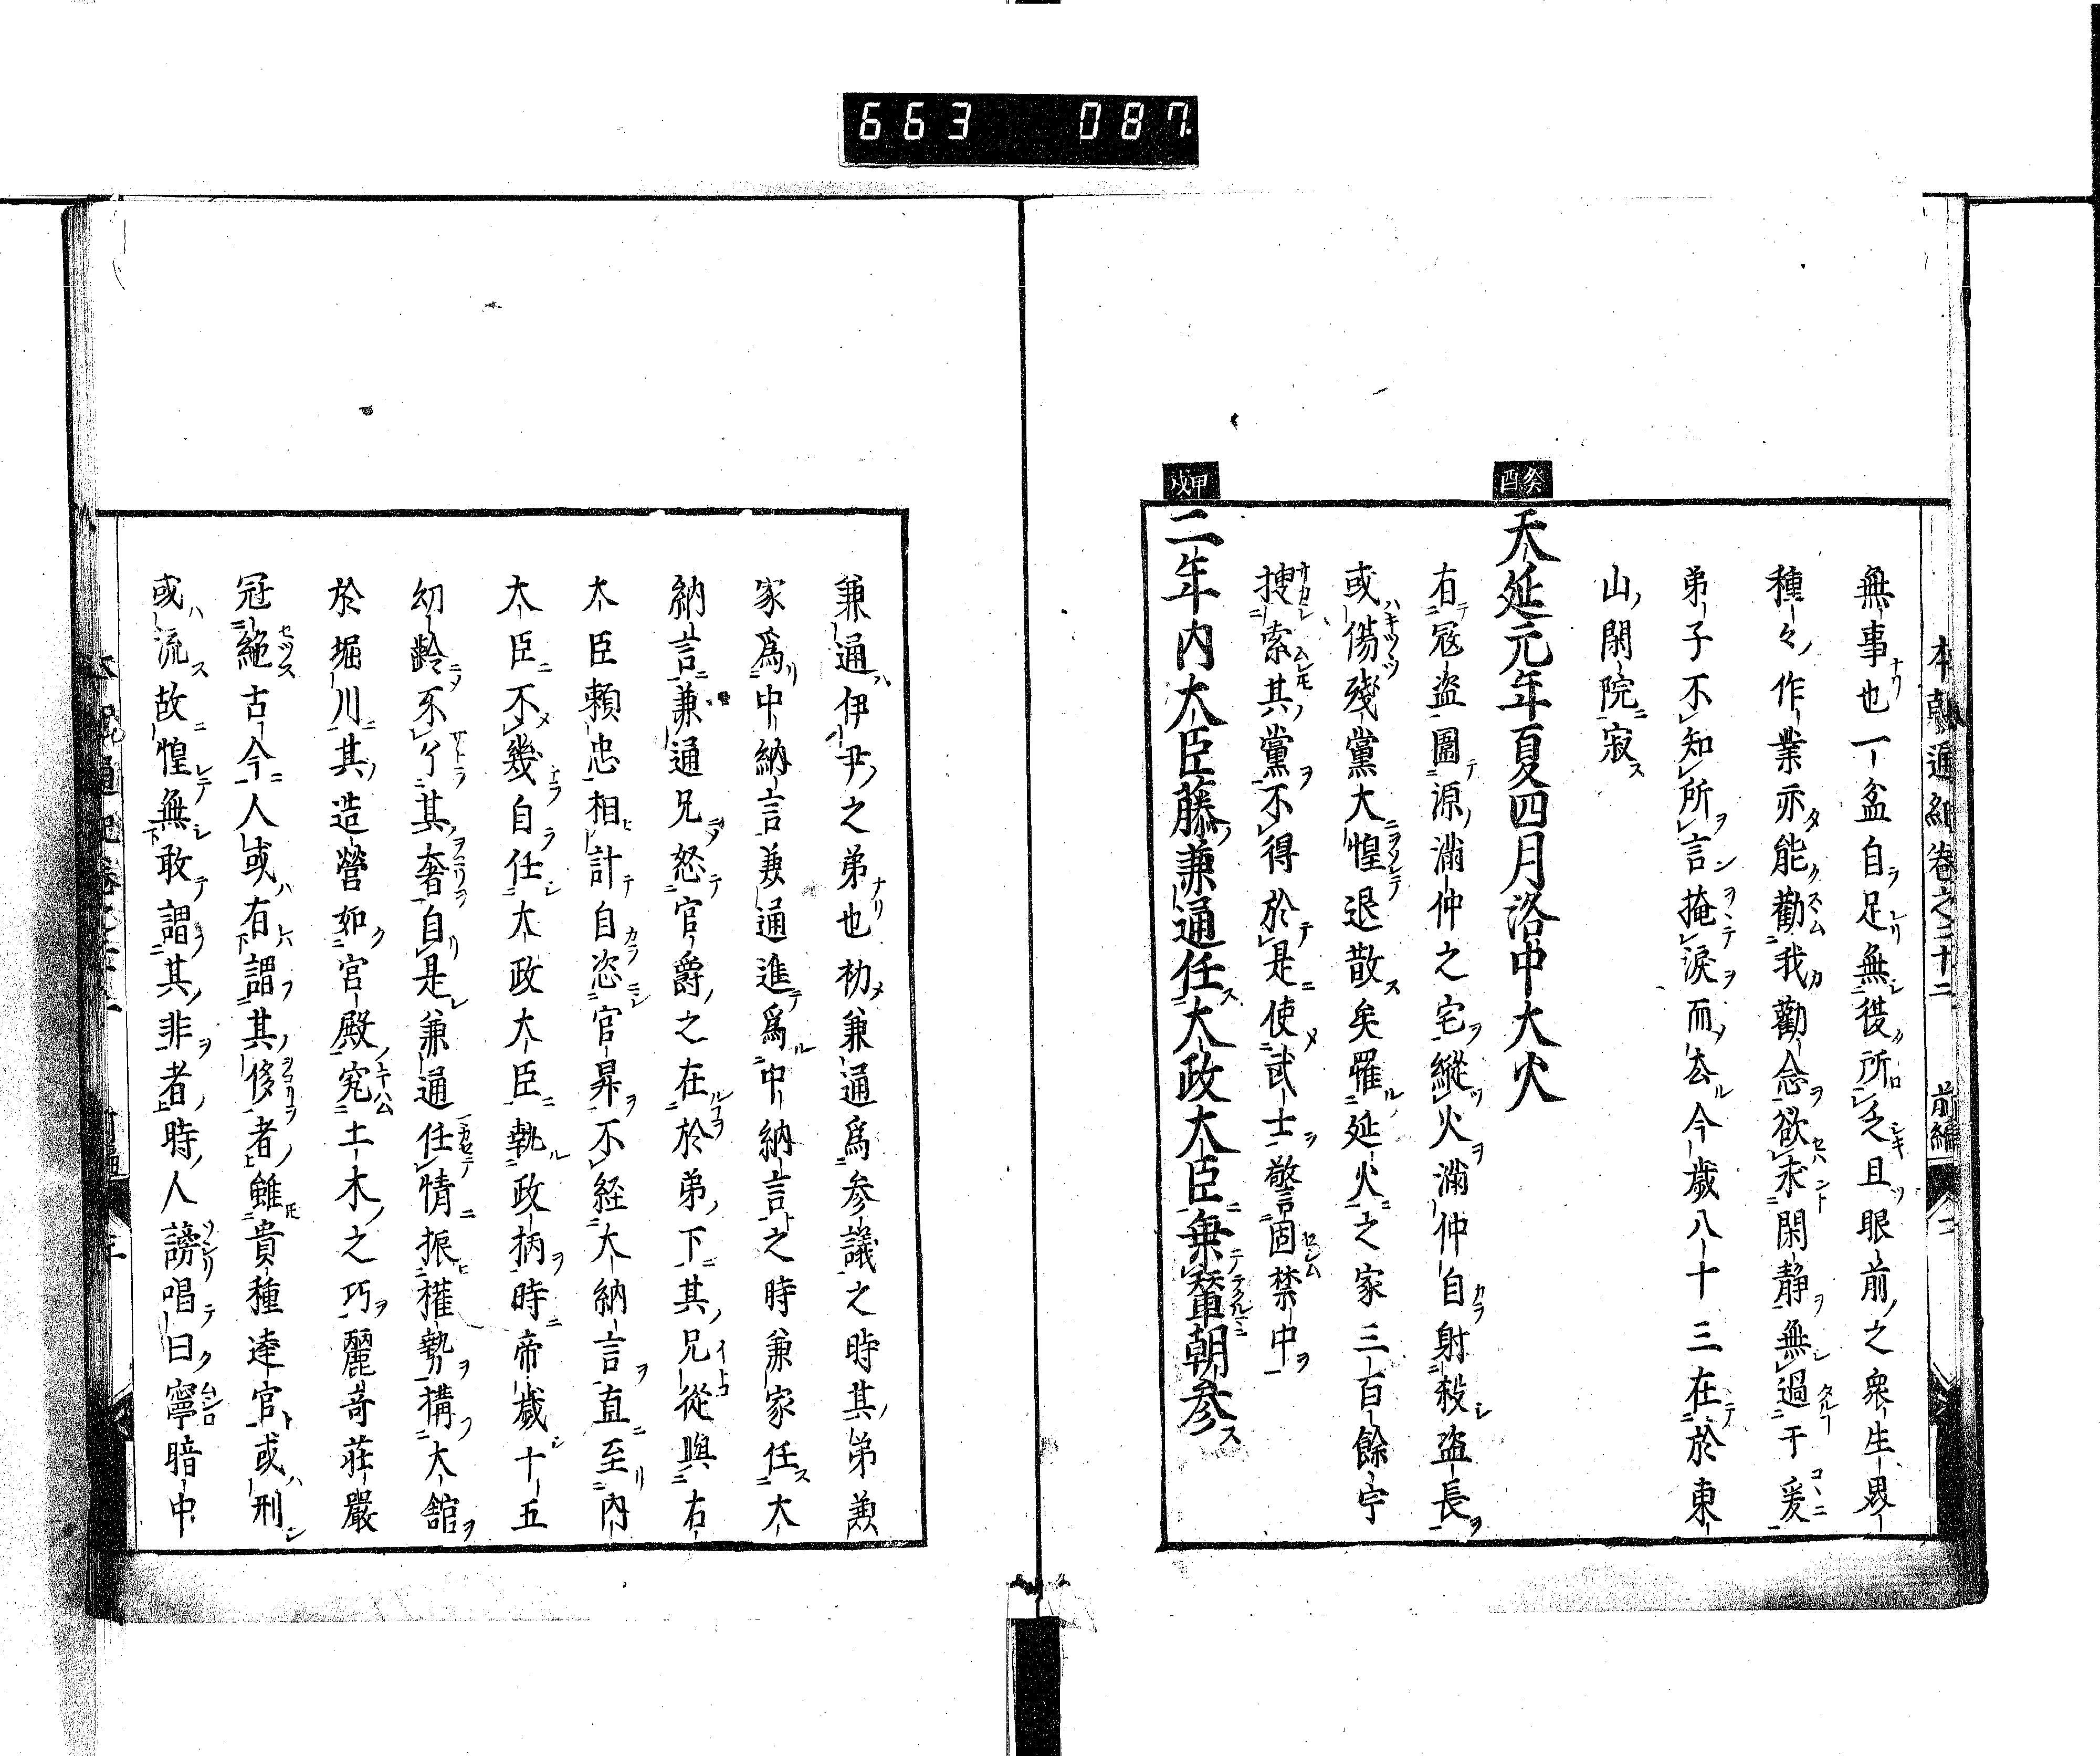 663 087.
本朝通紀卷之二十二 前編 二
無事也一盆自足無從所乏且眼前之衆生界
種々作業亦能勸我勸念欲求閑靜無過于爰
弟子不知所言掩淚而去今歲八十三在於東
山閑院寂
癸酉
天延元年夏四月洛中大火
有寇盜圍源滿仲之宅縱火滿仲自射殺盜長
或傷殘黨大惶退散矣罹延火之家三百餘宇
搜索其黨不得於是使武士警固禁中
甲戌
二年內大臣藤兼通任太政大臣乗輦朝参
兼通伊尹之弟也初兼通爲参議之時其弟兼
家爲中納言兼通進爲中納言之時兼家任大
納言兼通兄怒官爵之在於弟下其兄從與右
大臣賴忠相計自恣官昇不経大納言直至內
大臣不幾自任太政大臣執政柄時帝歲十五
幼齡不了其奢自是兼通任情振權勢構大舘
於堀川其造營如宮殿究土木之巧麗奇莊嚴
冠絕古今人或有謂其侈者雖貴種達官或刑
或流故惶無敢謂其非者時人謗唱曰寧暗中